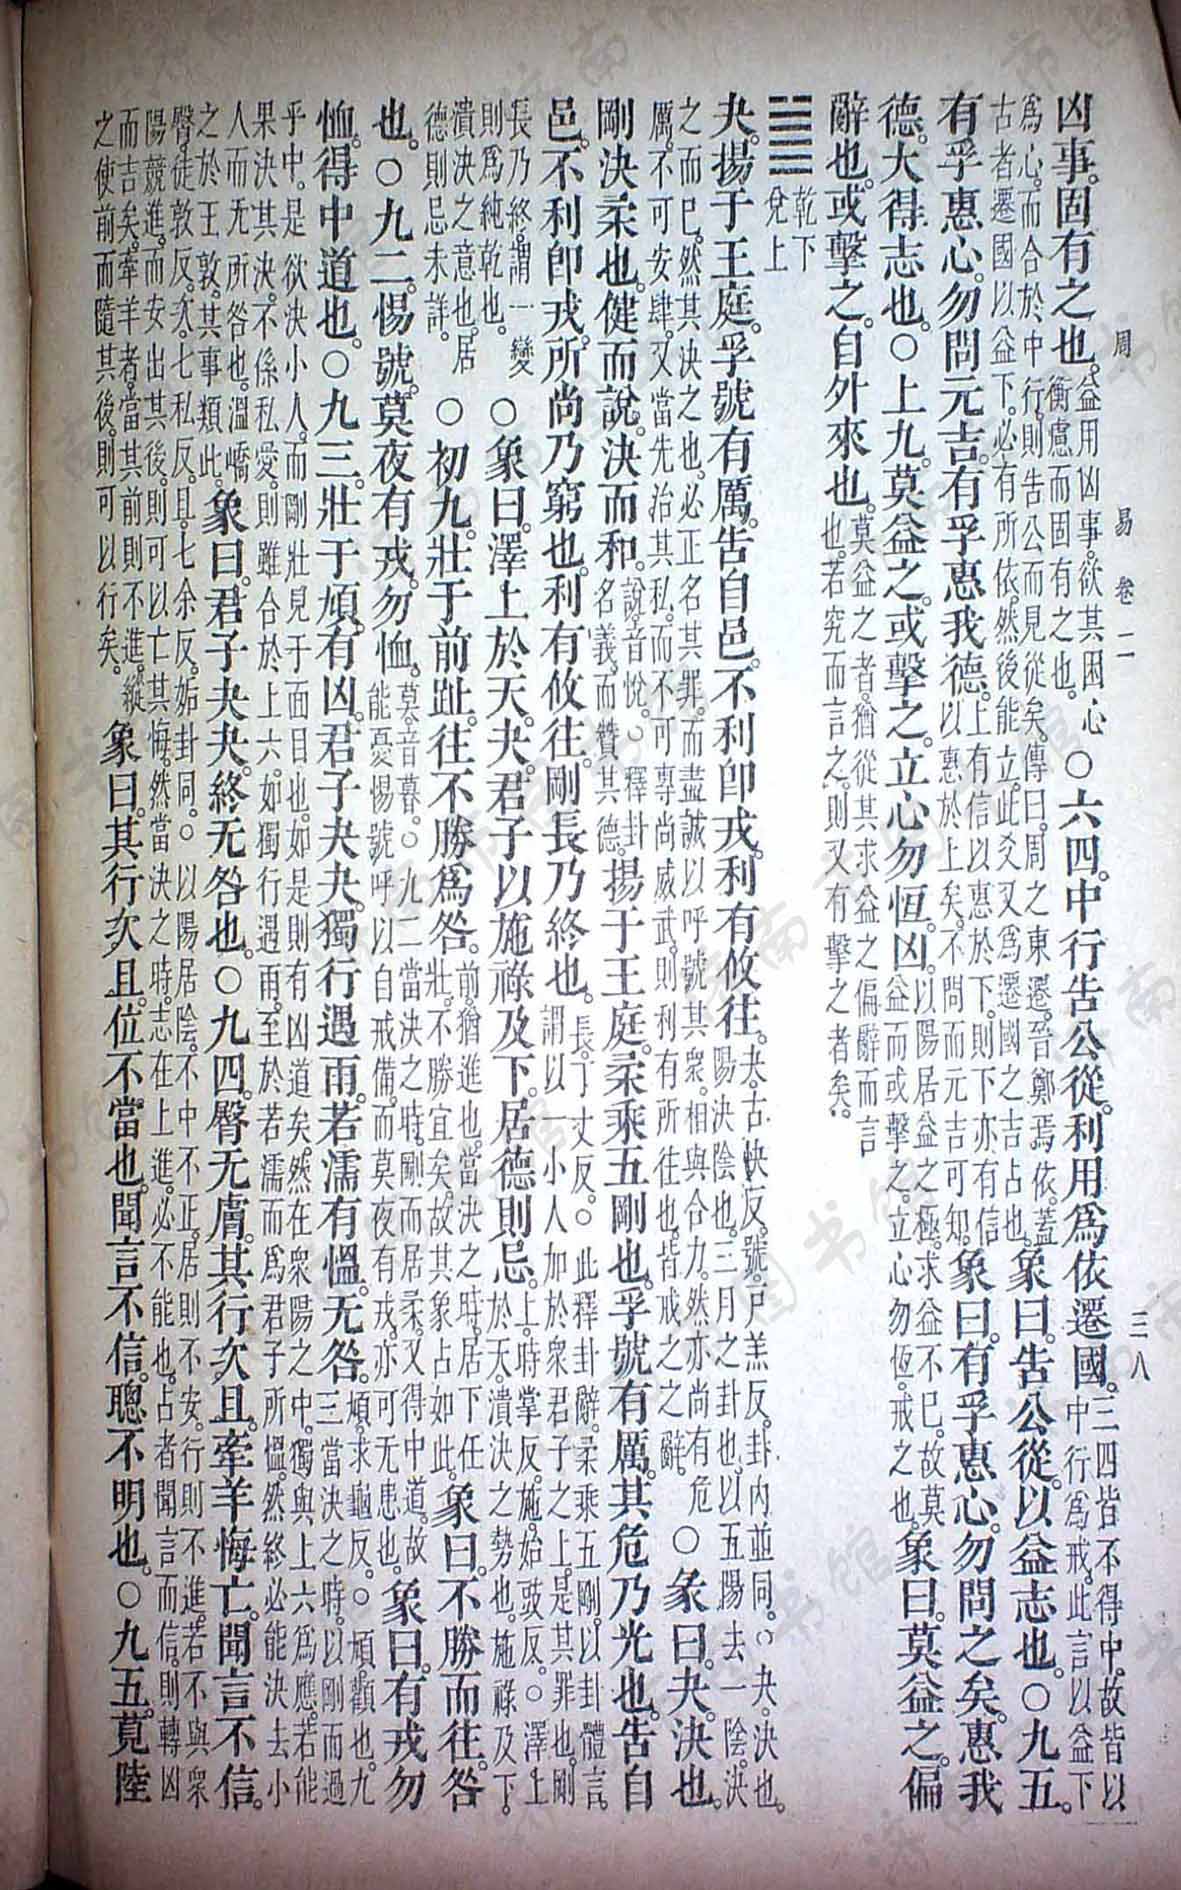 周易卷二 三八
凶事。固有之也。益用凶事。欲其困心衡慮而固有之也。○六四。中行告公從。利用爲依遷國。三四皆不得中。故皆以中行爲戒。此言以益下
爲心。而合於中行。則告公而見從矣。傳曰。周之東遷。晉鄭焉依。蓋古者遷國以益下。必有所依。然後能立。此爻又爲遷國之吉占也。象曰。告公從。以益志也。○九五。
有孚惠心。勿問元吉。有孚惠我德。上有信以惠於下。則下亦有信以惠於上矣。不問而元吉可知。象曰。有孚惠心。勿問之矣。惠我
德。大得志也。○上九。莫益之。或擊之。立心勿恒。凶。以陽居益之極。求益不已。故莫益而或擊之。立心勿恆。戒之也。象曰。莫益之。偏
辭也。或擊之。自外來也。莫益之者。猶從其求益之偏辭而言也。若究而言之。則又有擊之者矣。
䷪乾下兌上
夬。揚于王庭。孚號有厲。告自邑。不利卽戎。利有攸往。夬。古快反。號。戶羔反。卦內並同。○夬。決也。陽決陰也。三月之卦也。以五陽去一陰。決
之而已。然其決之也。必正名其罪。而盡誠以呼號其衆。相與合力。然亦尚有危厲。不可安肆。又當先治其私。而不可專尚威武。則利有所往也。皆戒之之辭。○彖曰。夬。決也。
剛決柔也。健而說。決而和。說音悅。○釋卦名義。而贊其德。揚于王庭。柔乘五剛也。孚號有厲。其危乃光也。告自
邑。不利卽戎。所尚乃窮也。利有攸往。剛長乃終也。長。丁丈反。○此釋卦辭。柔乘五剛。以卦體言。謂以一小人加於衆君子之上。是其罪也。剛
長乃終。謂一變則爲純乾也。○象曰。澤上於天。夬。君子以施祿及下。居德則忌。上。時掌反。施。始豉反。○澤上於天。潰決之勢也。施祿及下。
潰決之意也。居德則忌。未詳。○初九。壯于前趾。往不勝爲咎。前。猶進也。當決之時。居下任壯。不勝宜矣。故其象占如此。象曰。不勝而往。咎
也。○九二。惕號。莫夜有戎。勿恤。莫音暮。○九二當決之時。剛而居柔。又得中道。故能憂惕號呼。以自戒備。而莫夜有戎。亦可无患也。象曰。有戎勿
恤。得中道也。○九三。壯于頄。有凶。君子夬夬。獨行遇雨。若濡有慍。无咎。頄。求龜反。○頄。顴也。九三當決之時。以剛而過
乎中。是欲決小人。而剛壯見于面目也。如是則有凶道矣。然在衆陽之中。獨與上六爲應。若能果決其決。不係私愛。則雖合於上六。如獨行遇雨。至於若濡而爲君子所慍。然終必能決去小
人而无所咎也。溫嶠之於王敦。其事類此。象曰。君子夬夬。終无咎也。○九四。臀无膚。其行次且。牽羊悔亡。聞言不信。
臀。徒敦反。次。七私反。且。七余反。姤卦同。○以陽居陰。不中不正。居則不安。行則不進。若不與衆陽競進。而安出其後。則可以亡其悔。然當決之時。志在上進。必不能也。占者聞言而信。則轉凶
而吉矣。牽羊者。當其前則不進。縱之使前而隨其後。則可以行矣。象曰。其行次且。位不當也。聞言不信。聰不明也。○九五。莧陸
济南市图书馆